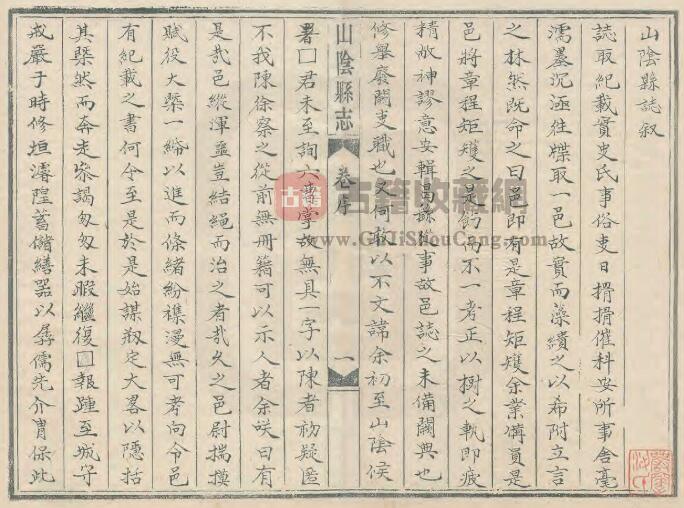 山陰縣誌叙
誌取紀載實史氏事俗吏日搰搰催科安所事舍毫
濡墨沉涵往牒取一邑故實而藻繢之以希附立言
之林然既命之曰邑即有是章程矩矱余業備員是
邑將章程矩矱之是飭而不一考正以樹之執即疲
精敝神謬意安輯曷繇從事故邑誌之未備闕典也
修舉廢闕吏職也又何敢以不文諱余初至山陰候
山陰縣志
卷序
一
署□君未至詢六曹掌故無具一字以陳者初疑匿
不我陳徐察之從前無冊籍可以示人者余唉曰有
是哉邑縱渾噩豈結繩而治之者哉久之邑尉揣摸
賦役大槩一綈以進而條緒紛襍漫無可考向令邑
有紀載之書何令至是於是始謀剏定大畧以隱括
其槩然而奔走叅謁匆匆未暇繼復□報踵至城守
戒嚴于時修垣濬隍蓄儲繕器以孱儒先介胄保此
古籍收藏網
www.GuJiShouCang.com